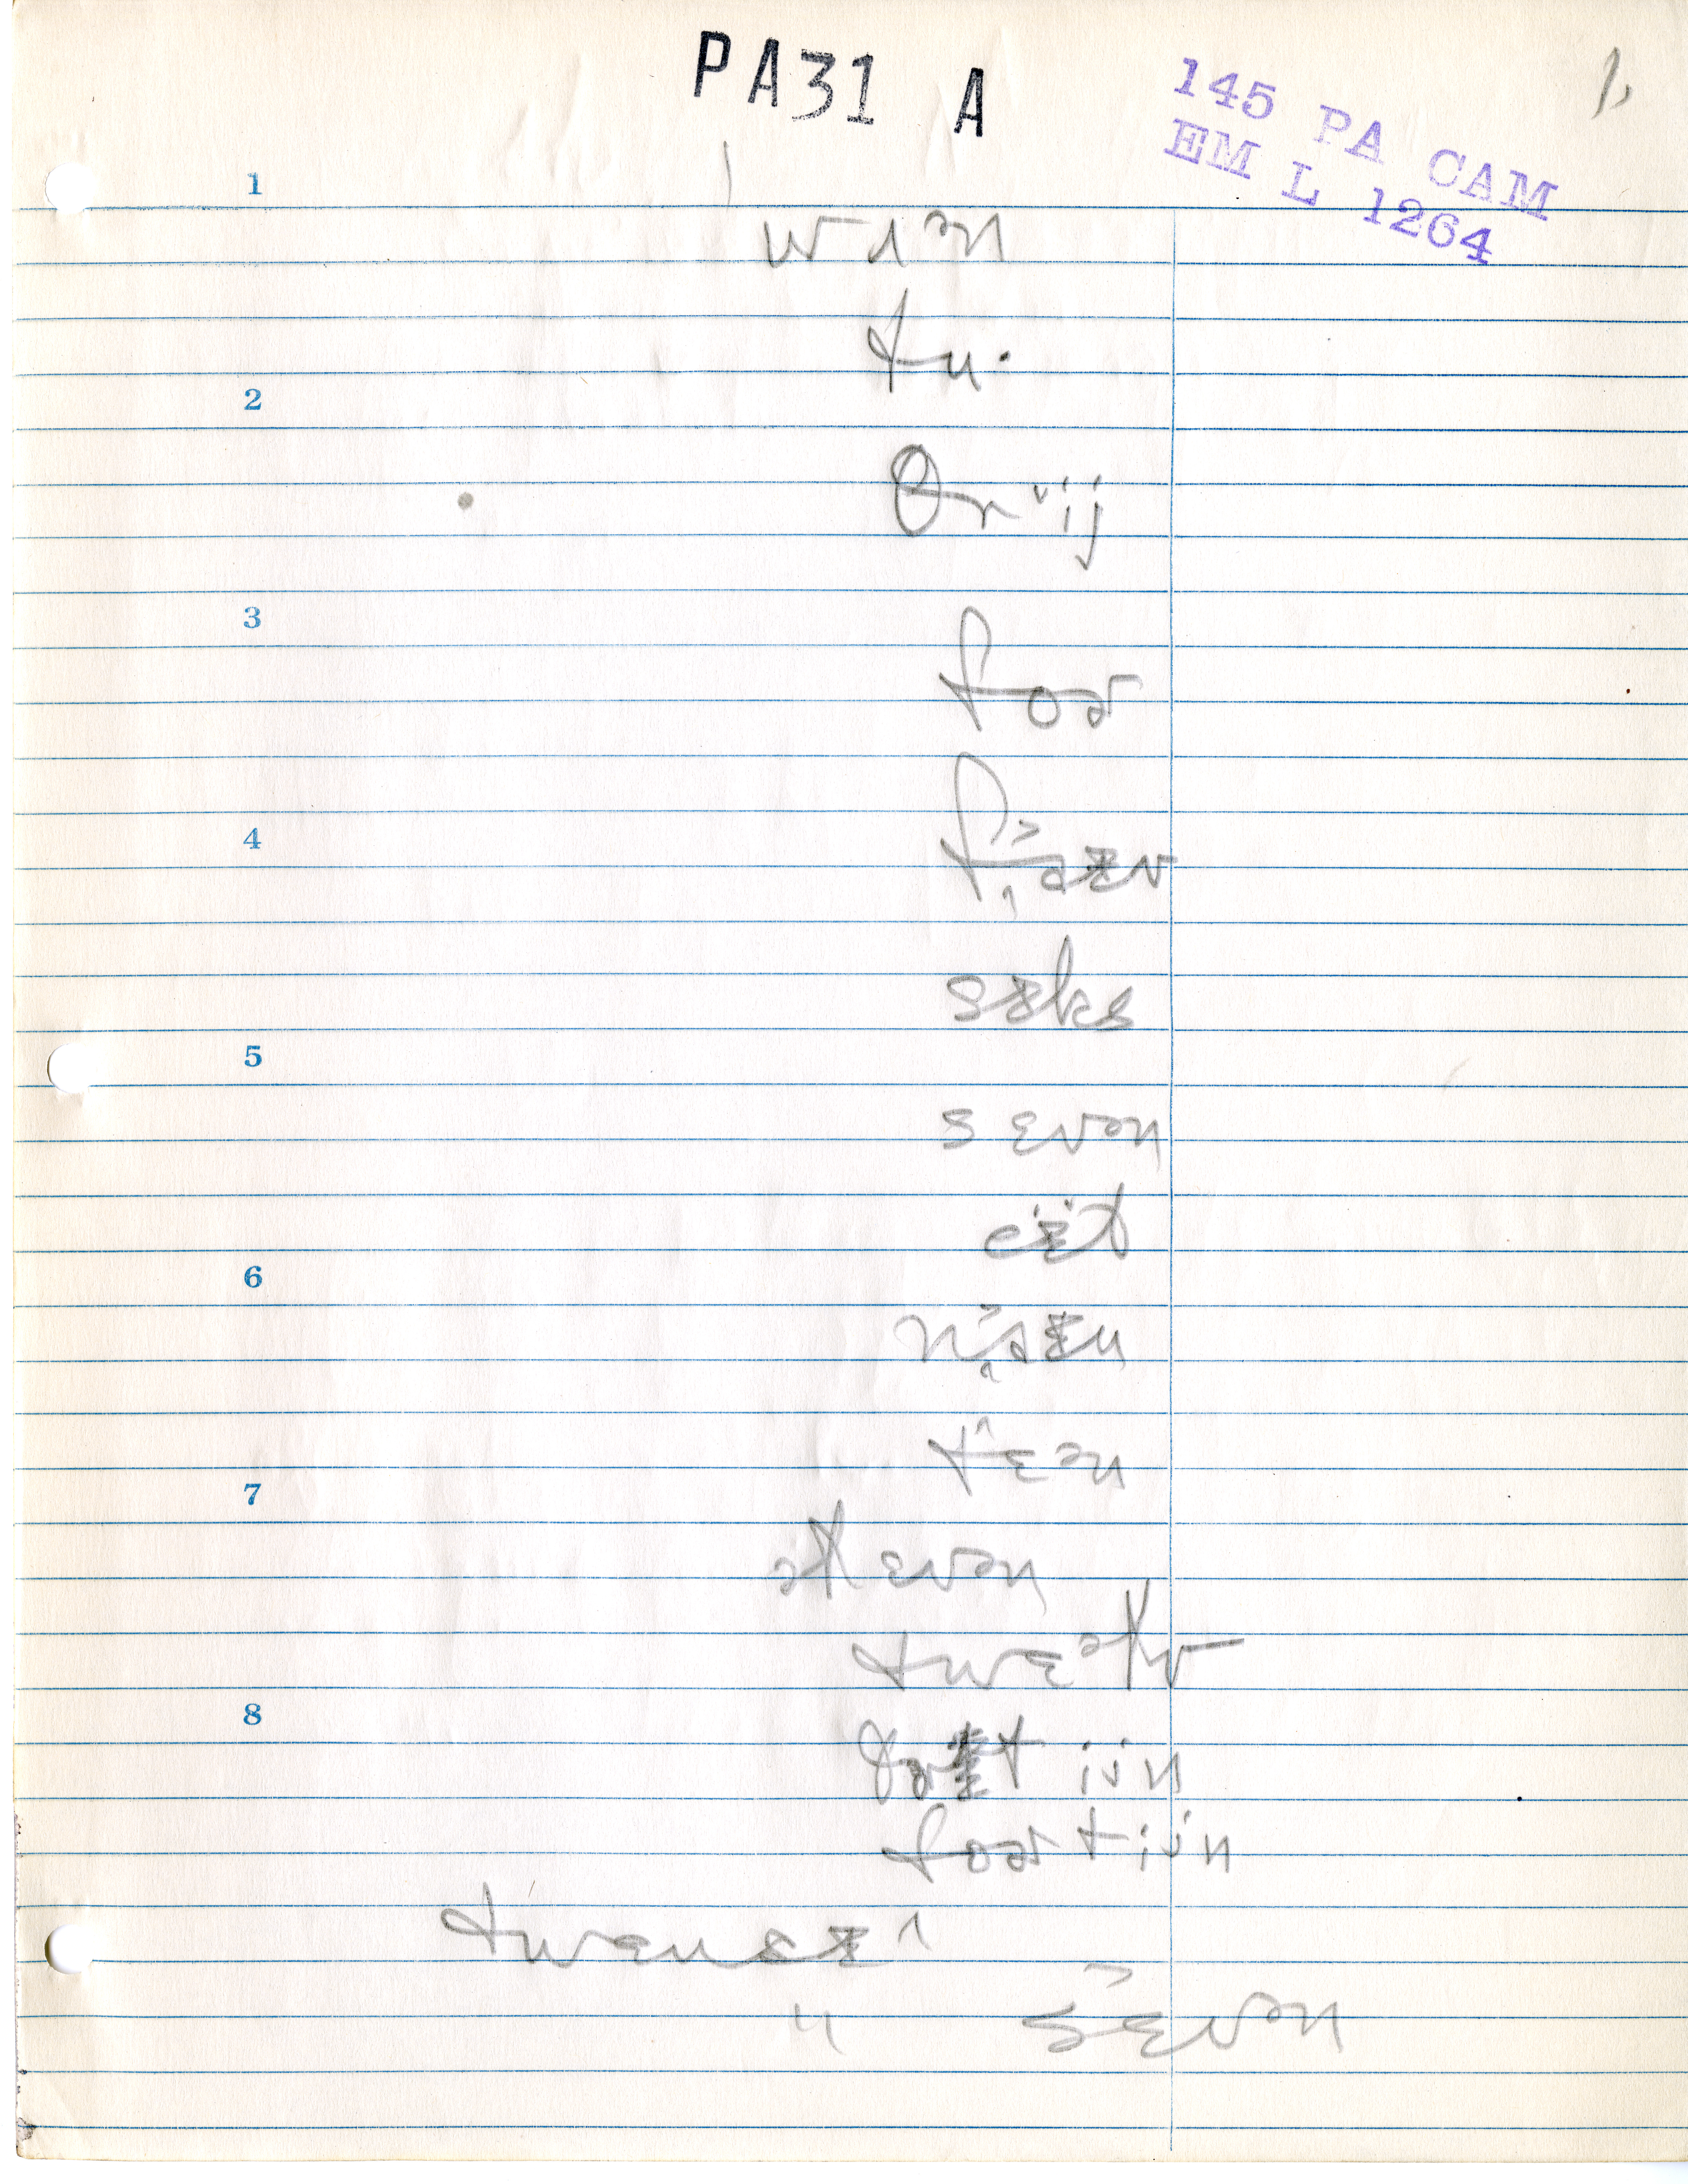 PA31 A
145 PA CAM
EM L 1264
1.
1
wʌən
tu·
2
θrᵛij
3
foɚ
4
sɪks
5
sɛvən
eɪt
6
tɛən
7
əlɛvən
twɛəlv
8
tijn
foɚtijn
twɛnsɪ
" sɛvən